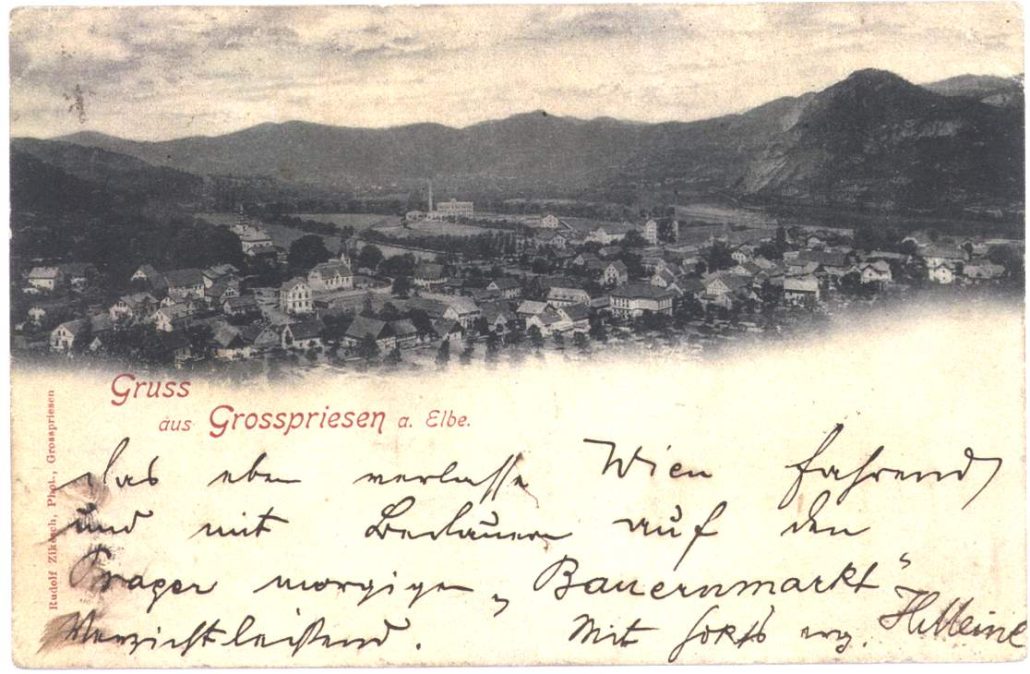 Gruss
aus Grosspriesen a. Elbe.
Rudolf Zikesch, Phot., Grosspriesen
das eben verlasse Wien fahrend
und mit Bedauern auf den
Prager morgigen „Bauernmarkt“
Verzichtleistend. Mit